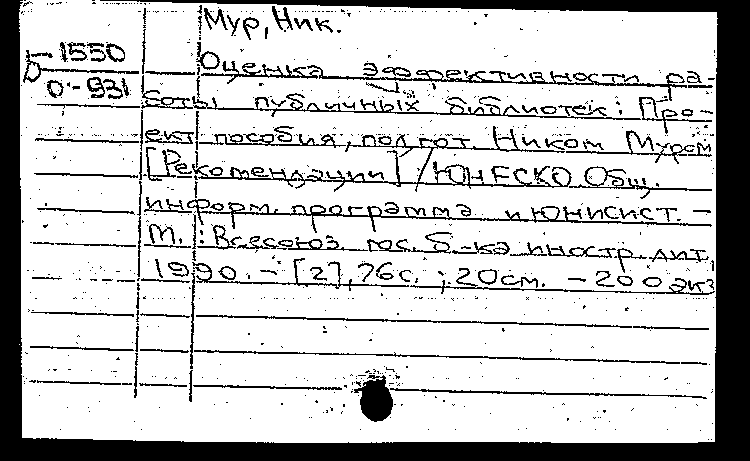 Мур, Ник.
Б-1550
О-931
Оценка эффективности ра-
боты публичных библиотек: Про-
ект пособия, подгот. Ником Муром
[Рекомендации] / ЮНЕСКО Общ.
информ. программа и ЮНИСИСТ. –
М.: Всесоюз. гос. б-ка иностр. лит,
1990. – [2], 76с. ; 20см. – 200 экз